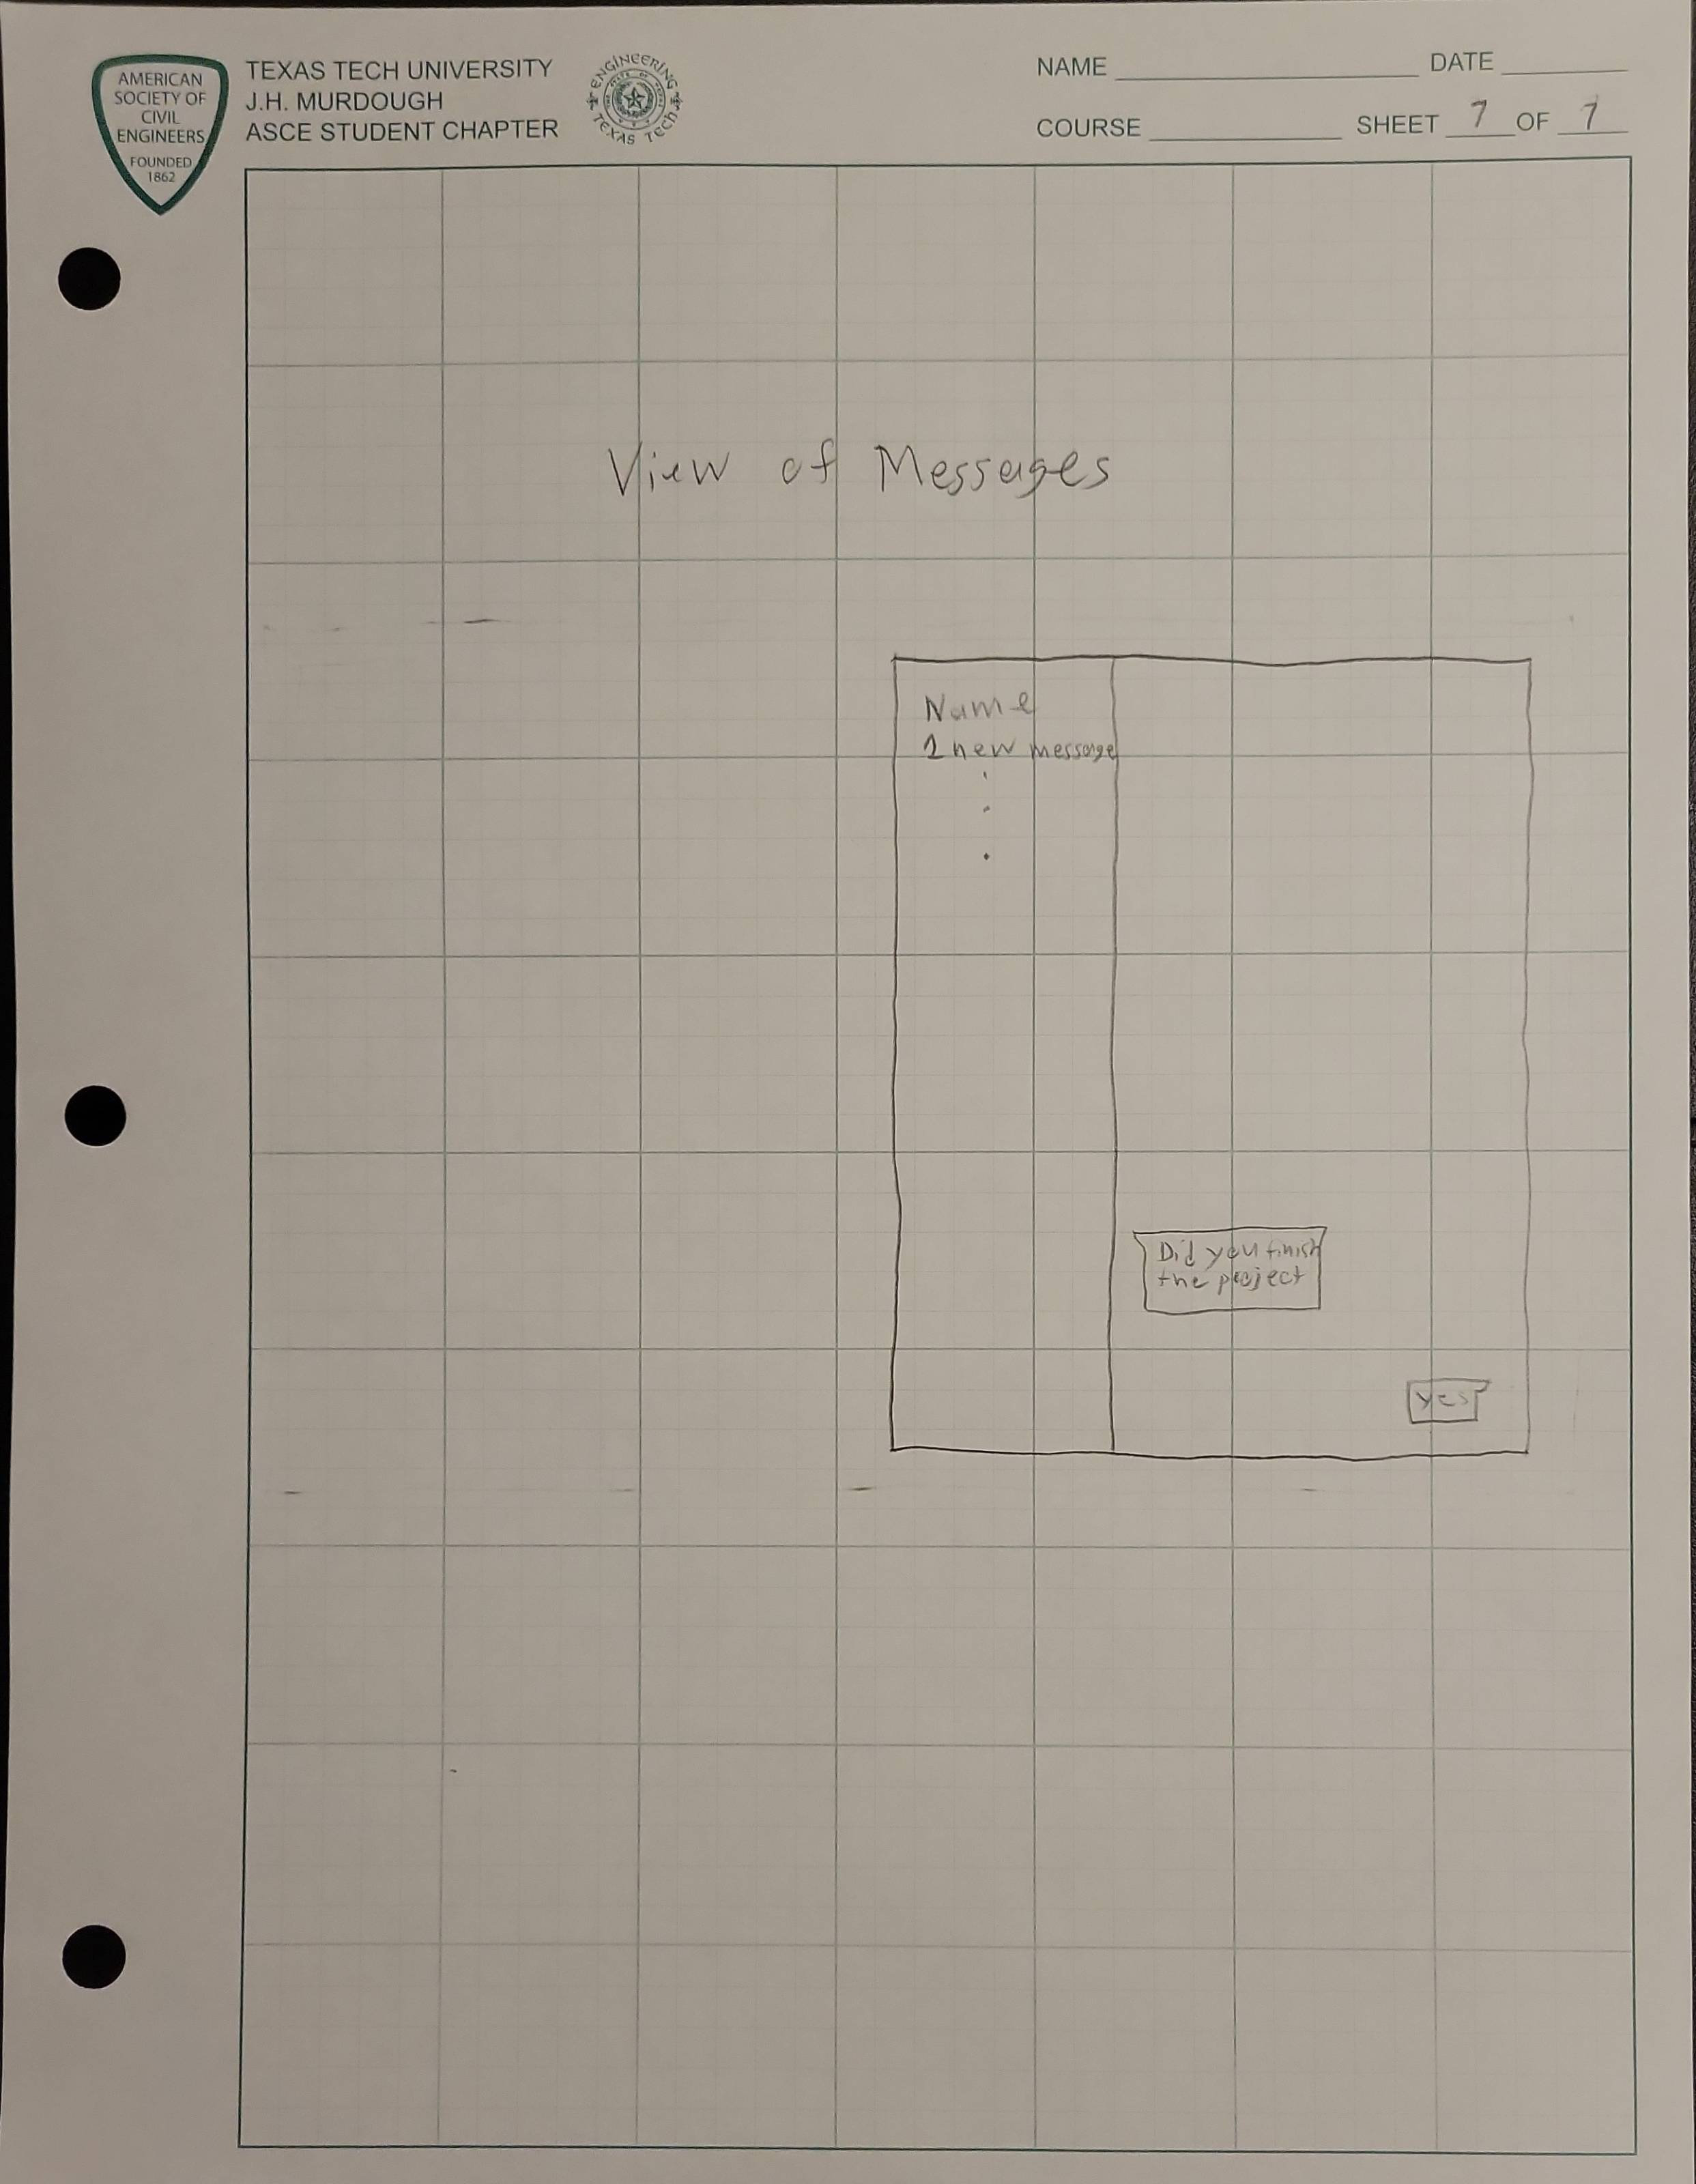 AMERICAN
SOCIETY OF
CIVIL
ENGINEERS
FOUNDED
1862
TEXAS TECH UNIVERSITY
J.H. MURDOUGH
ASCE STUDENT CHAPTER
ENGINEERING
TEXAS TECH
NAME
DATE
COURSE
SHEET 7 OF 7
View of Messages
Name
1 new message
Did you finish
the project
yes